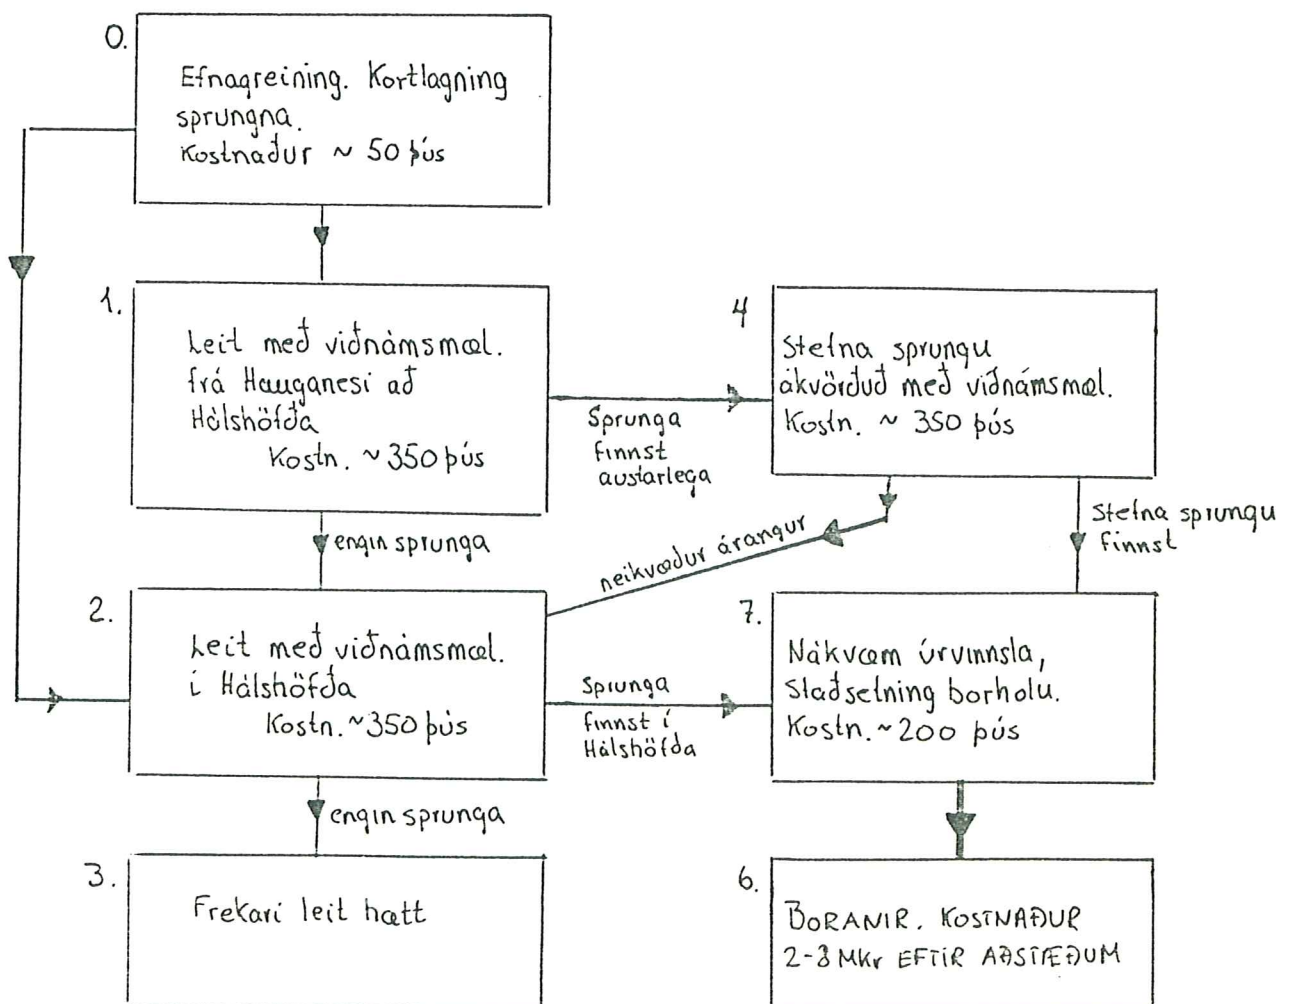 0.
Efnagreining. Kortlagning
sprungna.
Kostnaður ~ 50 þús
1.
Leit með viðnámsmæl.
frá Hauganesi að
Hálshöfða
Kostn. ~350 þús
Sprunga
finnst
austarlega
4
Stefna sprungu
ákvörðuð með viðnámsmæl.
Kostn. ~ 350 þús
engin sprunga
neikvæður árangur
Stefna sprungu
finnst
2.
Leit með viðnámsmæl.
í Hálshöfða
Kostn. ~350 þús
Sprunga
finnst í
Hálshöfða
7.
Nákvæm úrvinnsla,
staðsetning borholu.
Kostn. ~200 þús
engin sprunga
3.
Frekari leit hætt
6.
BORANIR. KOSTNAÐUR
2-8 MKr EFTIR AÐSTÆÐUM